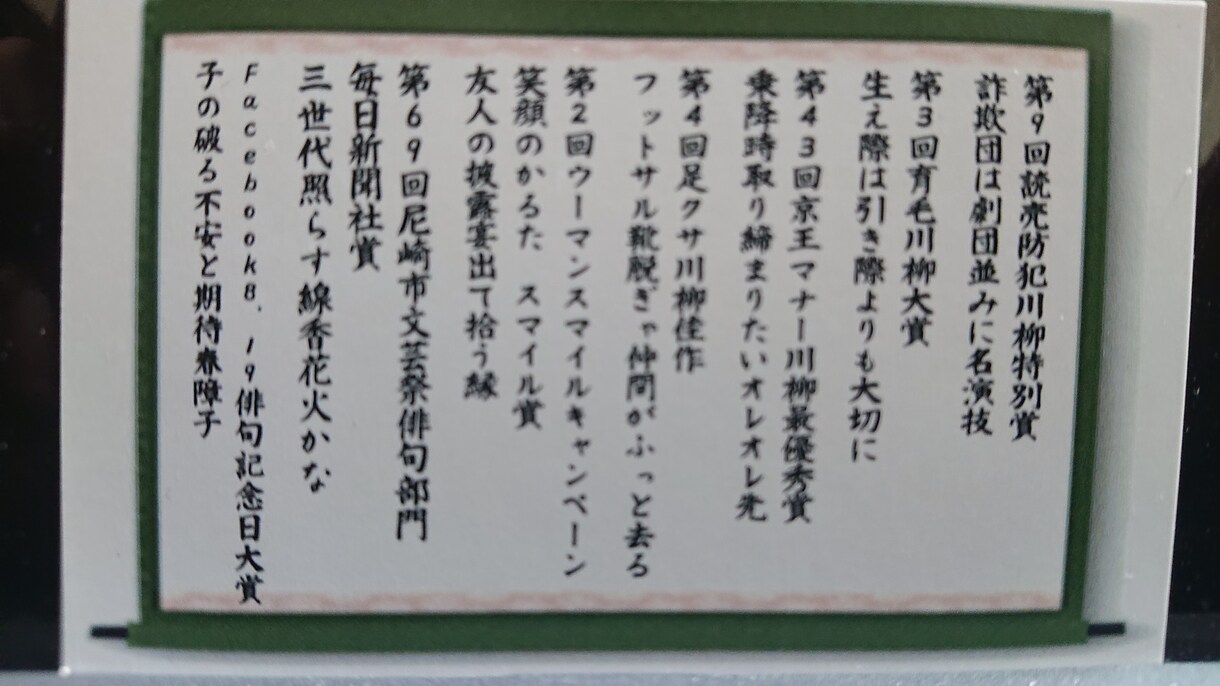 第9回読売防犯川柳特別賞
詐欺団は劇団並みに名演技
第3回育毛川柳大賞
生え際は引き際よりも大切に
第43回京王マナー川柳最優秀賞
乗降時取り締まりたいオレオレ先
第4回足クサ川柳佳作
フットサル靴脱ぎゃ仲間がふっと去る
第2回ウーマンスマイルキャンペーン
笑顔のかるた スマイル賞
友人の披露宴出て拾う縁
第69回尼崎市文芸祭俳句部門
毎日新聞社賞
三世代照らす線香花火かな
Facebook8.19俳句記念日大賞
子の破る不安と期待春障子